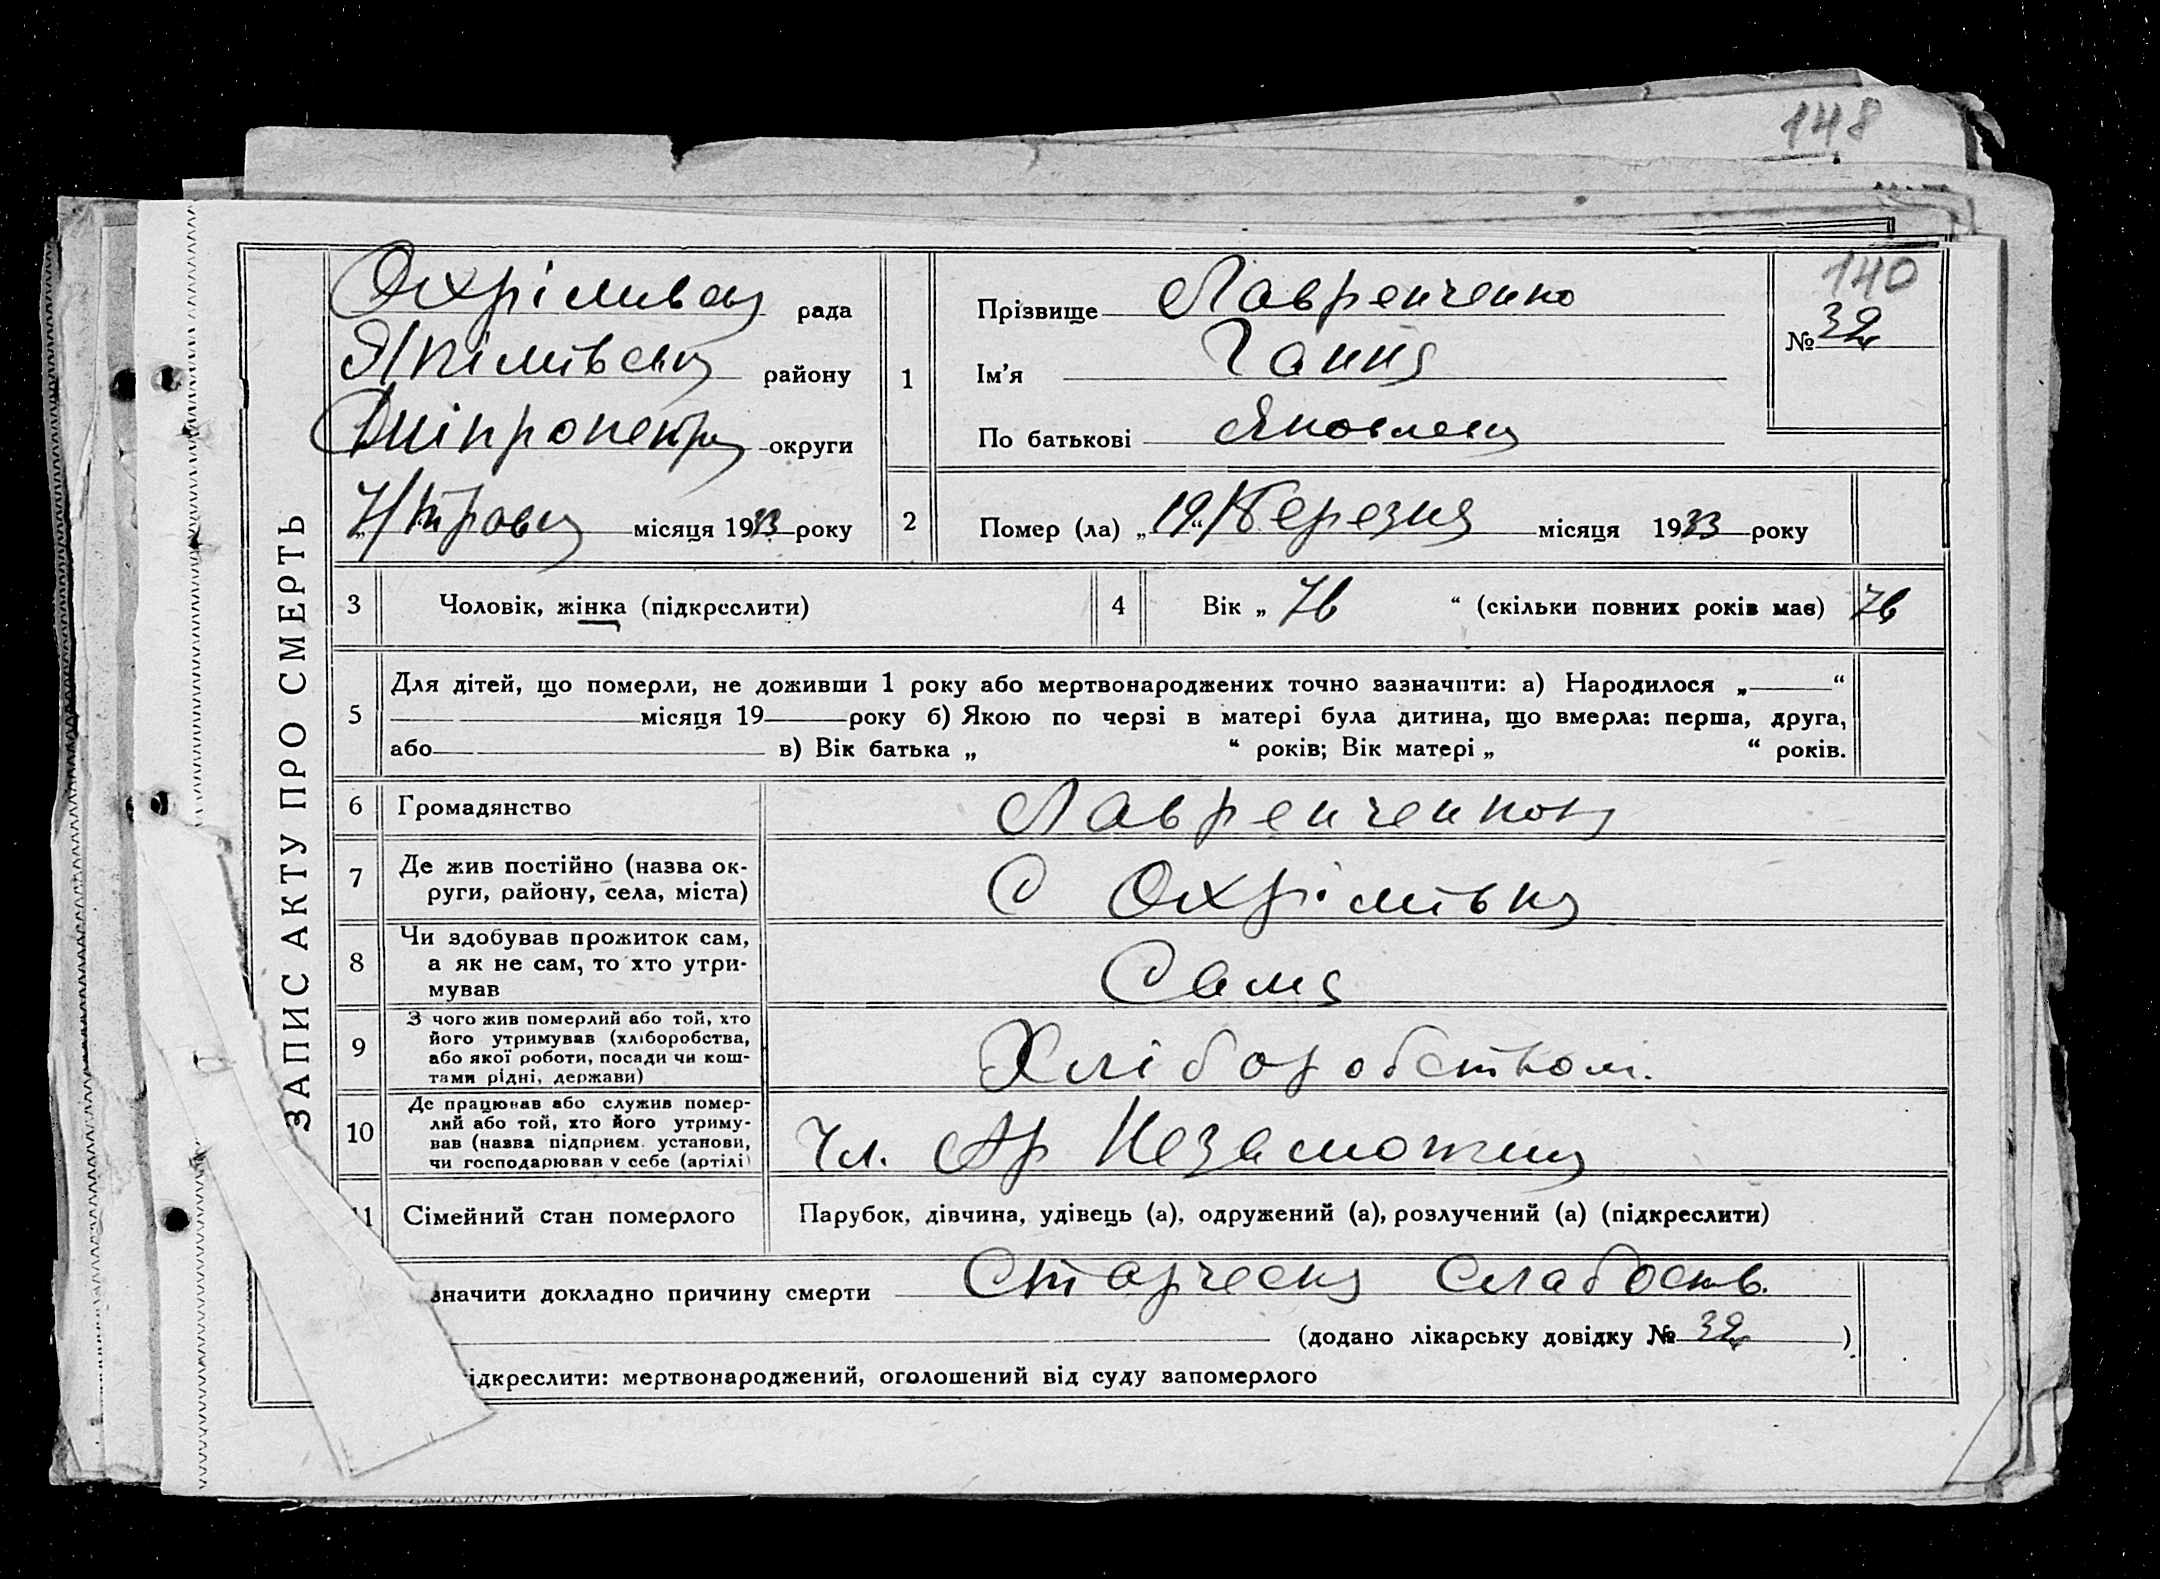 148
140
ЗАПИС АКТУ ПРО СМЕРТЬ
Охрімивська рада
Якімівська району
Дніпропетр округи
місяця 1933 року
1
Прізвище Лавренченко
Ім'я Ганна
По батькові Яковлевна
№ 32
2
Помер (ла) „19“ Березня місяця 1933 року
3
Чоловік, жінка (підкреслити)
4
Вік „ 76 “ (скільки повних років має) 76
5
Для дітей, що померли, не доживши 1 року або мертвонароджених точно зазначити: а) Народилося „ “
місяця 19 року б) Якою по черзі в матері була дитина, що вмерла: перша, друга,
або в) Вік батька „ “ років; Вік матері „ “ років.
6
Громадянство
7
Де жив постійно (назва ок-
руги, району, села, міста)
С Охрімивка
8
Чи здобував прожиток сам,
а як не сам, то хто утри-
мував
Сама
9
З чого жив померлий або той, хто
його утримував (хліборобства,
або якої роботи, посади чи кош-
тами рідні, держави)
Хліборобством.
10
Де працював або служив помер-
лий або той, хто його утриму-
вав (назва підприєм. установи,
чи господарював у себе (артілі)
Чл. Ар Незаможник
11
Сімейний стан померлого
Парубок, дівчина, удівець (а), одружений (а), розлучений (а) (підкреслити)
значити докладно причину смерти Старческа слабость.
(додано лікарську довідку № 32 )
ідкреслити: мертвонароджений, оголошений від суду запомерлого